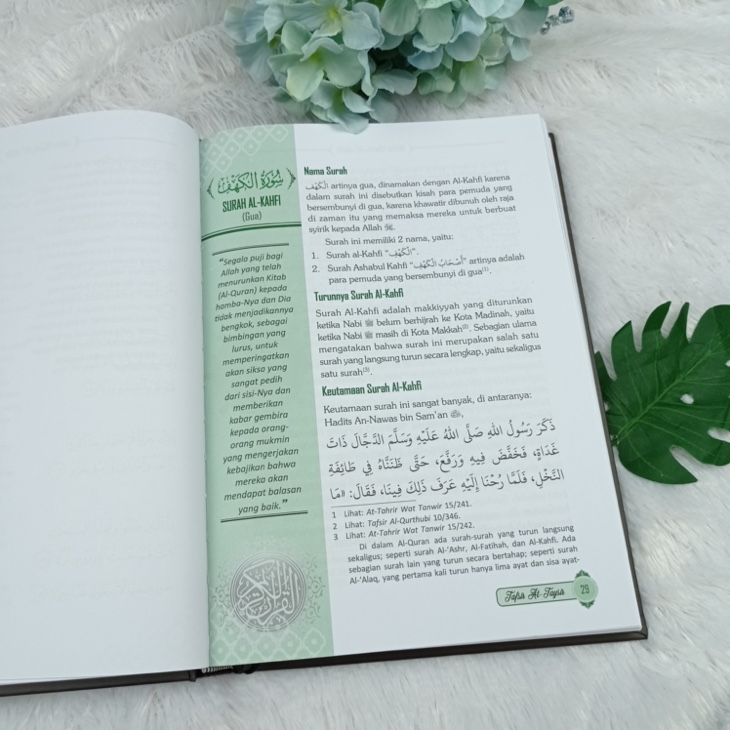 سُوْرَةُ الْكَهْفِ
SURAH AL-KAHFI
(Gua)
"Segala puji bagi
Allah yang telah
menurunkan Kitab
(Al-Quran) kepada
hamba-Nya dan Dia
tidak menjadikannya
bengkok, sebagai
bimbingan yang
lurus, untuk
memperingatkan
akan siksa yang
sangat pedih
dari sisi-Nya dan
memberikan
kabar gembira
kepada orang-
orang mukmin
yang mengerjakan
kebajikan bahwa
mereka akan
mendapat balasan
yang baik."
القرآن الكريم
Nama Surah
الْكَهْف artinya gua, dinamakan dengan Al-Kahfi karena
dalam surah ini disebutkan kisah para pemuda yang
bersembunyi di gua, karena khawatir dibunuh oleh raja
di zaman itu yang memaksa mereka untuk berbuat
syirik kepada Allah ﷻ.
Surah ini memiliki 2 nama, yaitu:
1. Surah al-Kahfi "الْكَهْف".
2. Surah Ashabul Kahfi "أَصْحَابُ الْكَهْفِ" artinya adalah
para pemuda yang bersembunyi di gua(1).
Turunnya Surah Al-Kahfi
Surah Al-Kahfi adalah makkiyyah yang diturunkan
ketika Nabi ﷺ belum berhijrah ke Kota Madinah, yaitu
ketika Nabi ﷺ masih di Kota Makkah(2). Sebagian ulama
mengatakan bahwa surah ini merupakan salah satu
surah yang langsung turun secara lengkap, yaitu sekaligus
satu surah(3).
Keutamaan Surah Al-Kahfi
Keutamaan surah ini sangat banyak, di antaranya:
Hadits An-Nawas bin Sam'an
ذَكَرَ رَسُولُ اللهِ صَلَّى اللهُ عَلَيْهِ وَسَلَّمَ الدَّجَّالَ ذَاتَ
غَدَاةٍ، فَخَفَّضَ فِيهِ وَرَفَّعَ، حَتَّى ظَنَنَّاهُ فِي طَائِفَةِ
النَّخْلِ، فَلَمَّا رُحْنَا إِلَيْهِ عَرَفَ ذَلِكَ فِينَا، فَقَالَ: «مَا
1 Lihat: At-Tahrir Wat Tanwir 15/241.
2 Lihat: Tafsir Al-Qurthubi 10/346.
3 Lihat: At-Tahrir Wat Tanwir 15/242.
Di dalam Al-Quran ada surah-surah yang turun langsung
sekaligus; seperti surah Al-'Ashr, Al-Fatihah, dan Al-Kahfi. Ada
sebagian surah lain yang turun secara bertahap; seperti surah
Al-'Alaq, yang pertama kali turun hanya lima ayat dan sisa ayat-
Tafsir At-Taysir 29